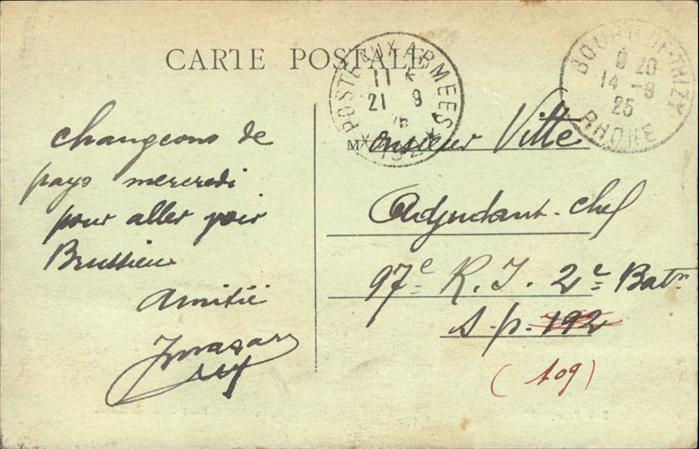 CARTE POSTALE
POSTE AUX ARMEES
11
21 9
25
* 192 *
BOURG-DE-THIZY
9 20
14 -9
25
RHONE
changeons de
pays mercredi
pour aller voir
Brussieu
Amitié
Monsieur Vitte
Adjudant-chef
97e R. I. 2e Batn
S. p. 192
(109)